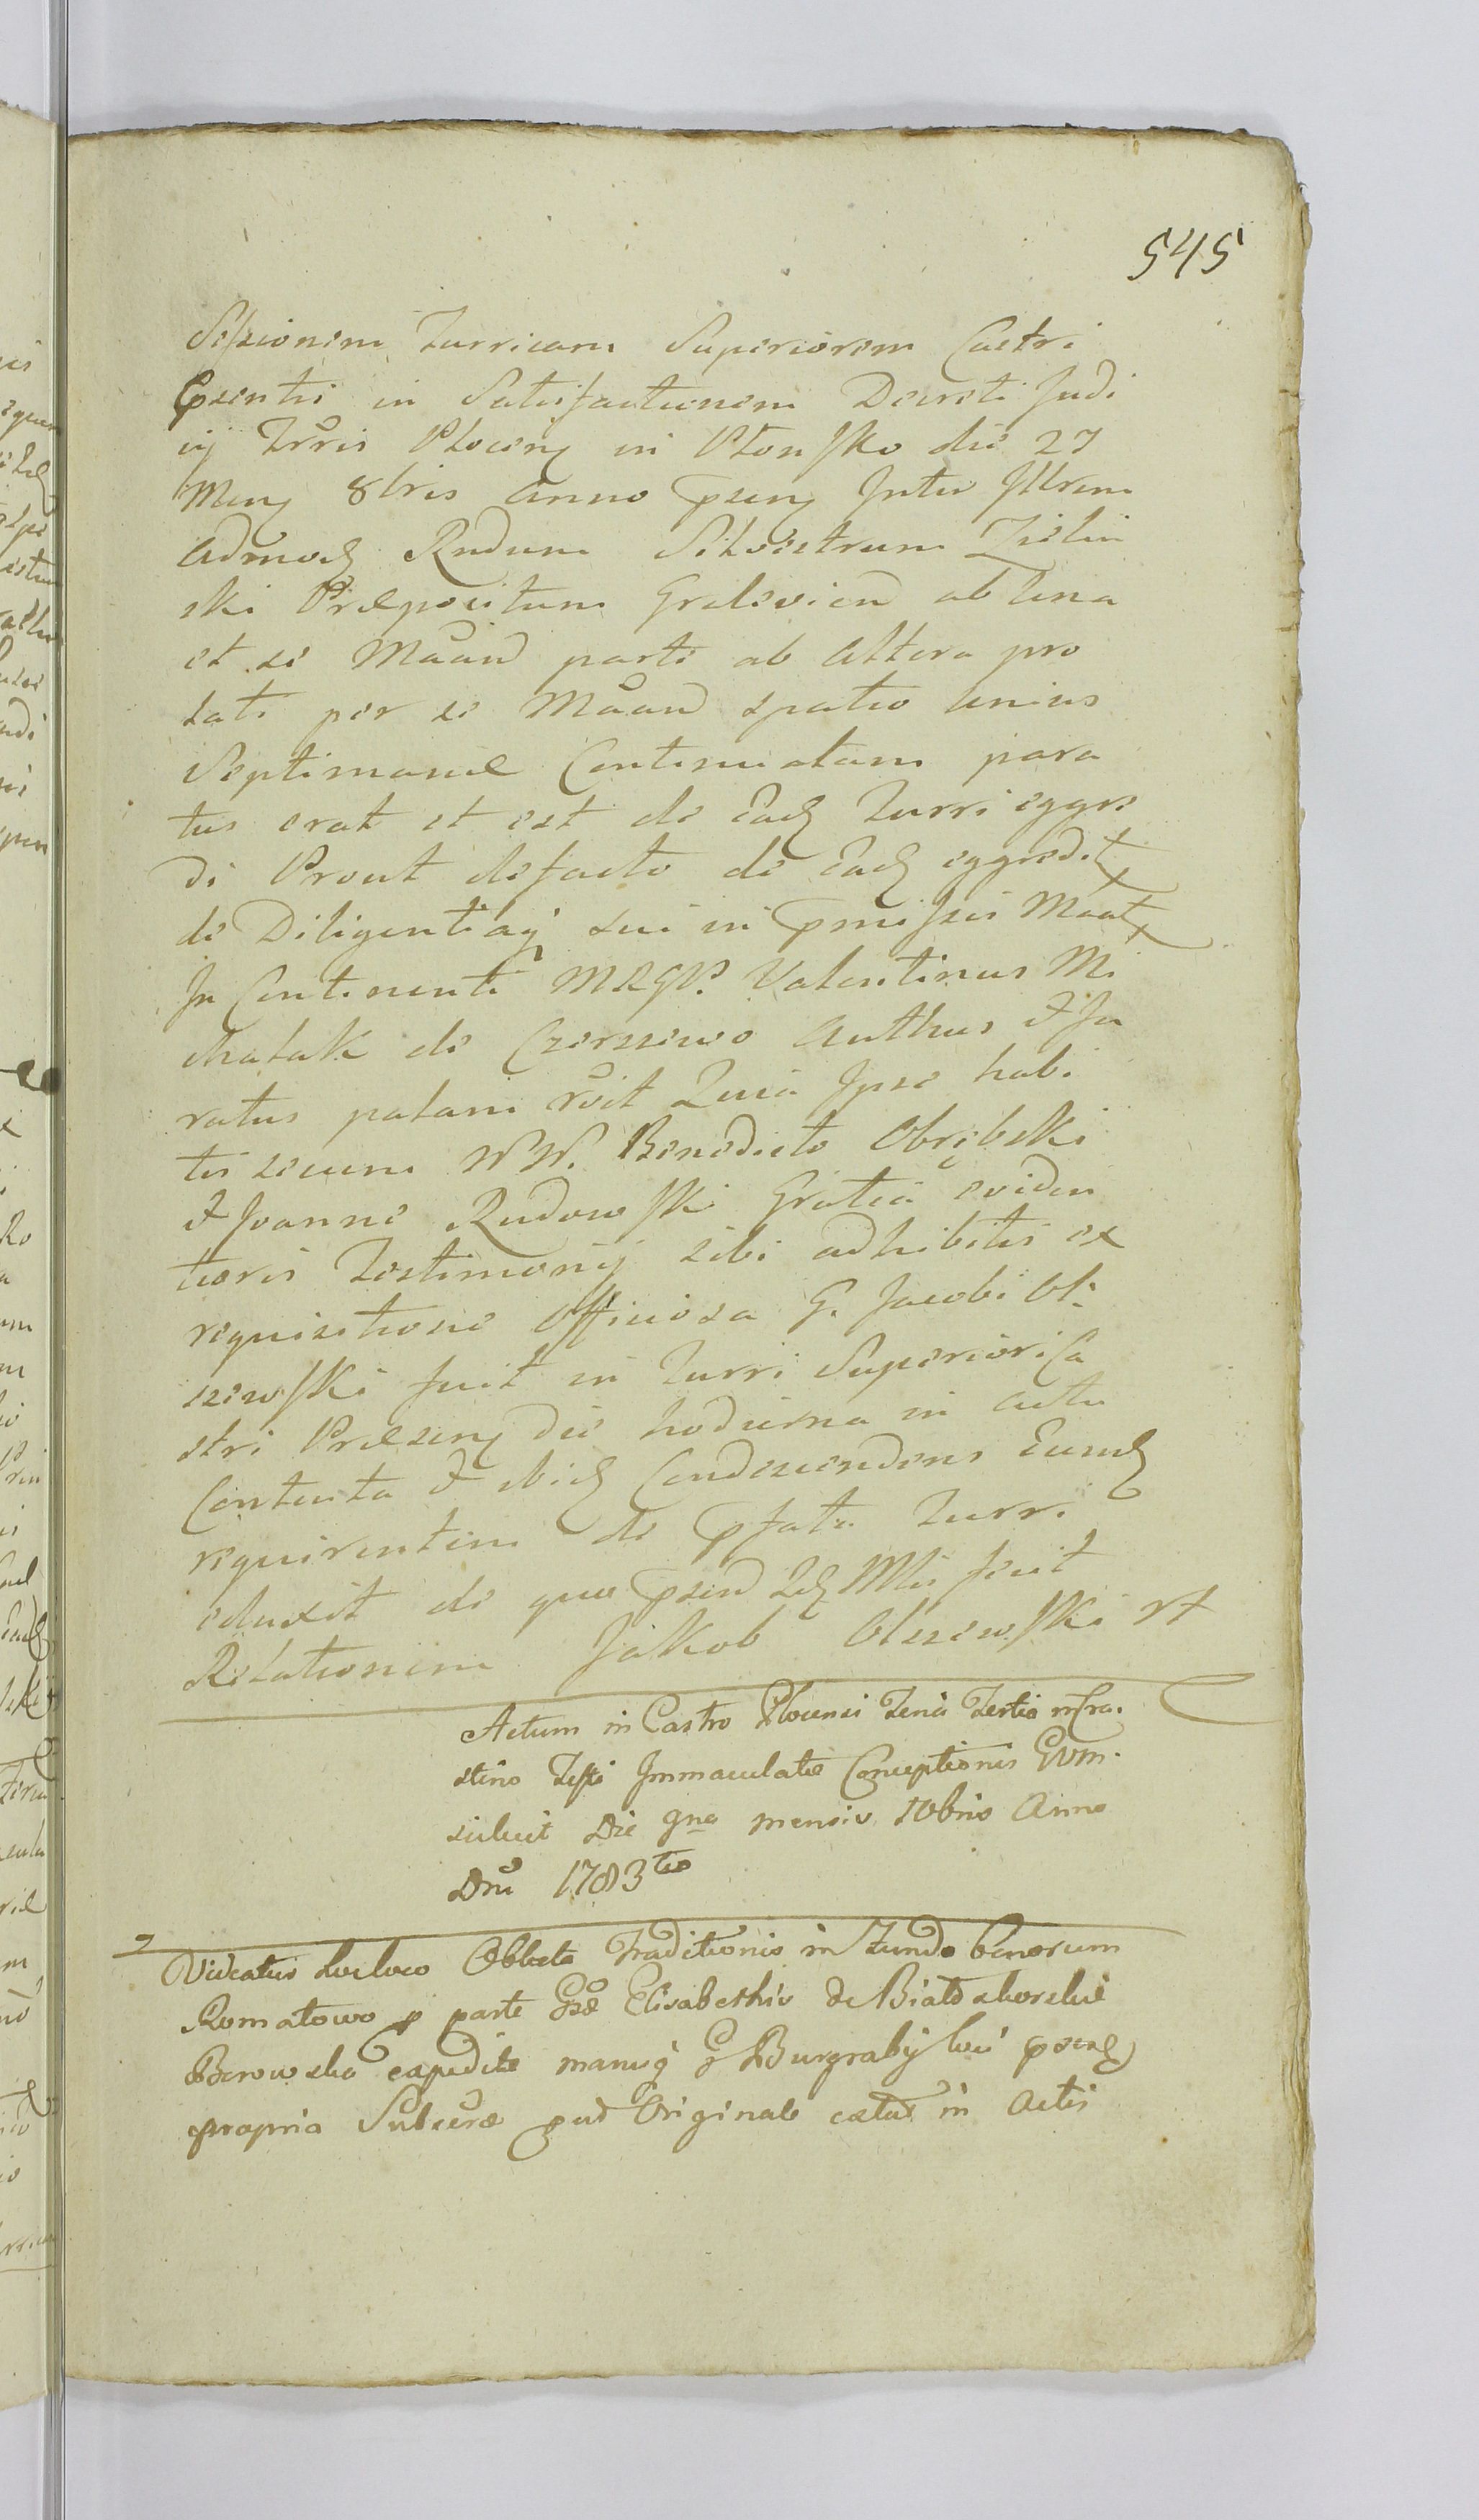 545
Sessionem Turricam Superiorem Castri
Psentis in Satisfactionem Decreti Judi
cij Trris Plocens in Płonsko die 27
Mens 8bris Anno psens Inter Illrem
Admod Rndum Silvestrum Zielin
ski Præpositum Gralevien ab Una
et se Maan parte ab Altera pro
lati per se Maan spatio Unius
Septimanæ Continuatam para
tus erat et est de Ead Turri eggre
di Prout defacto de Ead eggredit
de Diligentiaq sui in pmissis Maat
In Continenti MRGD. Valentinus Mi
chalak de Czerszewo Authus & Ju
ratus palam rcit Quia Ipse habi
tis secum NN. Benedicto Obrębski
& Joanne Rudowski Gratia eviden
tioris Testimonij sibi adhibitis ex
requisitione Officiosa G. Jacobi Ol
szewski fuit in Turri Superiori Ca
stri Præsens die hodierna in actu
Contenta & ibid Condescendens Eund
requirentem de pfata Turri
eduxit de quo psen Id Mli fecit
Relationem Jakob Olszewski
Actum in Castro Plocensi Feria Tertia in Cra.
stino Festi Immaculatæ Conceptionis BVM.
scilicet Die 9na mensis Xbris Anno
Dni 1783tio
Videatur suo loco Oblata Traditionis in Fundo bonorum
Romatowo p parte Gsæ Elisabethis de Białoskorskie
Borowska expeditæ manuq G Burgrabij loci psens
propria Subscræ pud Originale extat in Actis